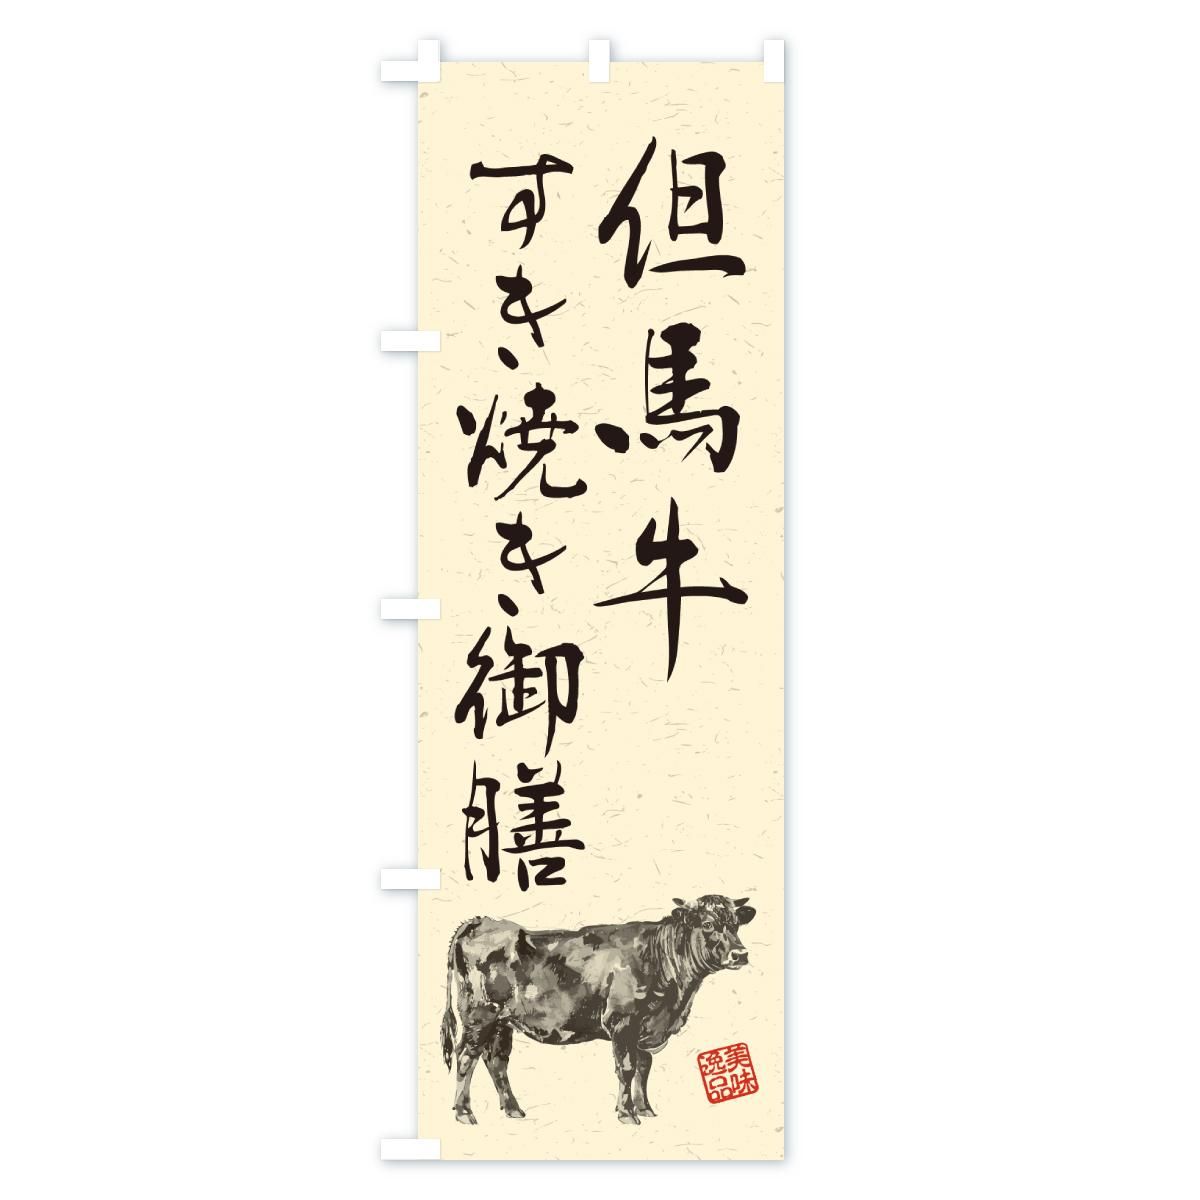 但馬牛
すき焼き御膳
美味
逸品